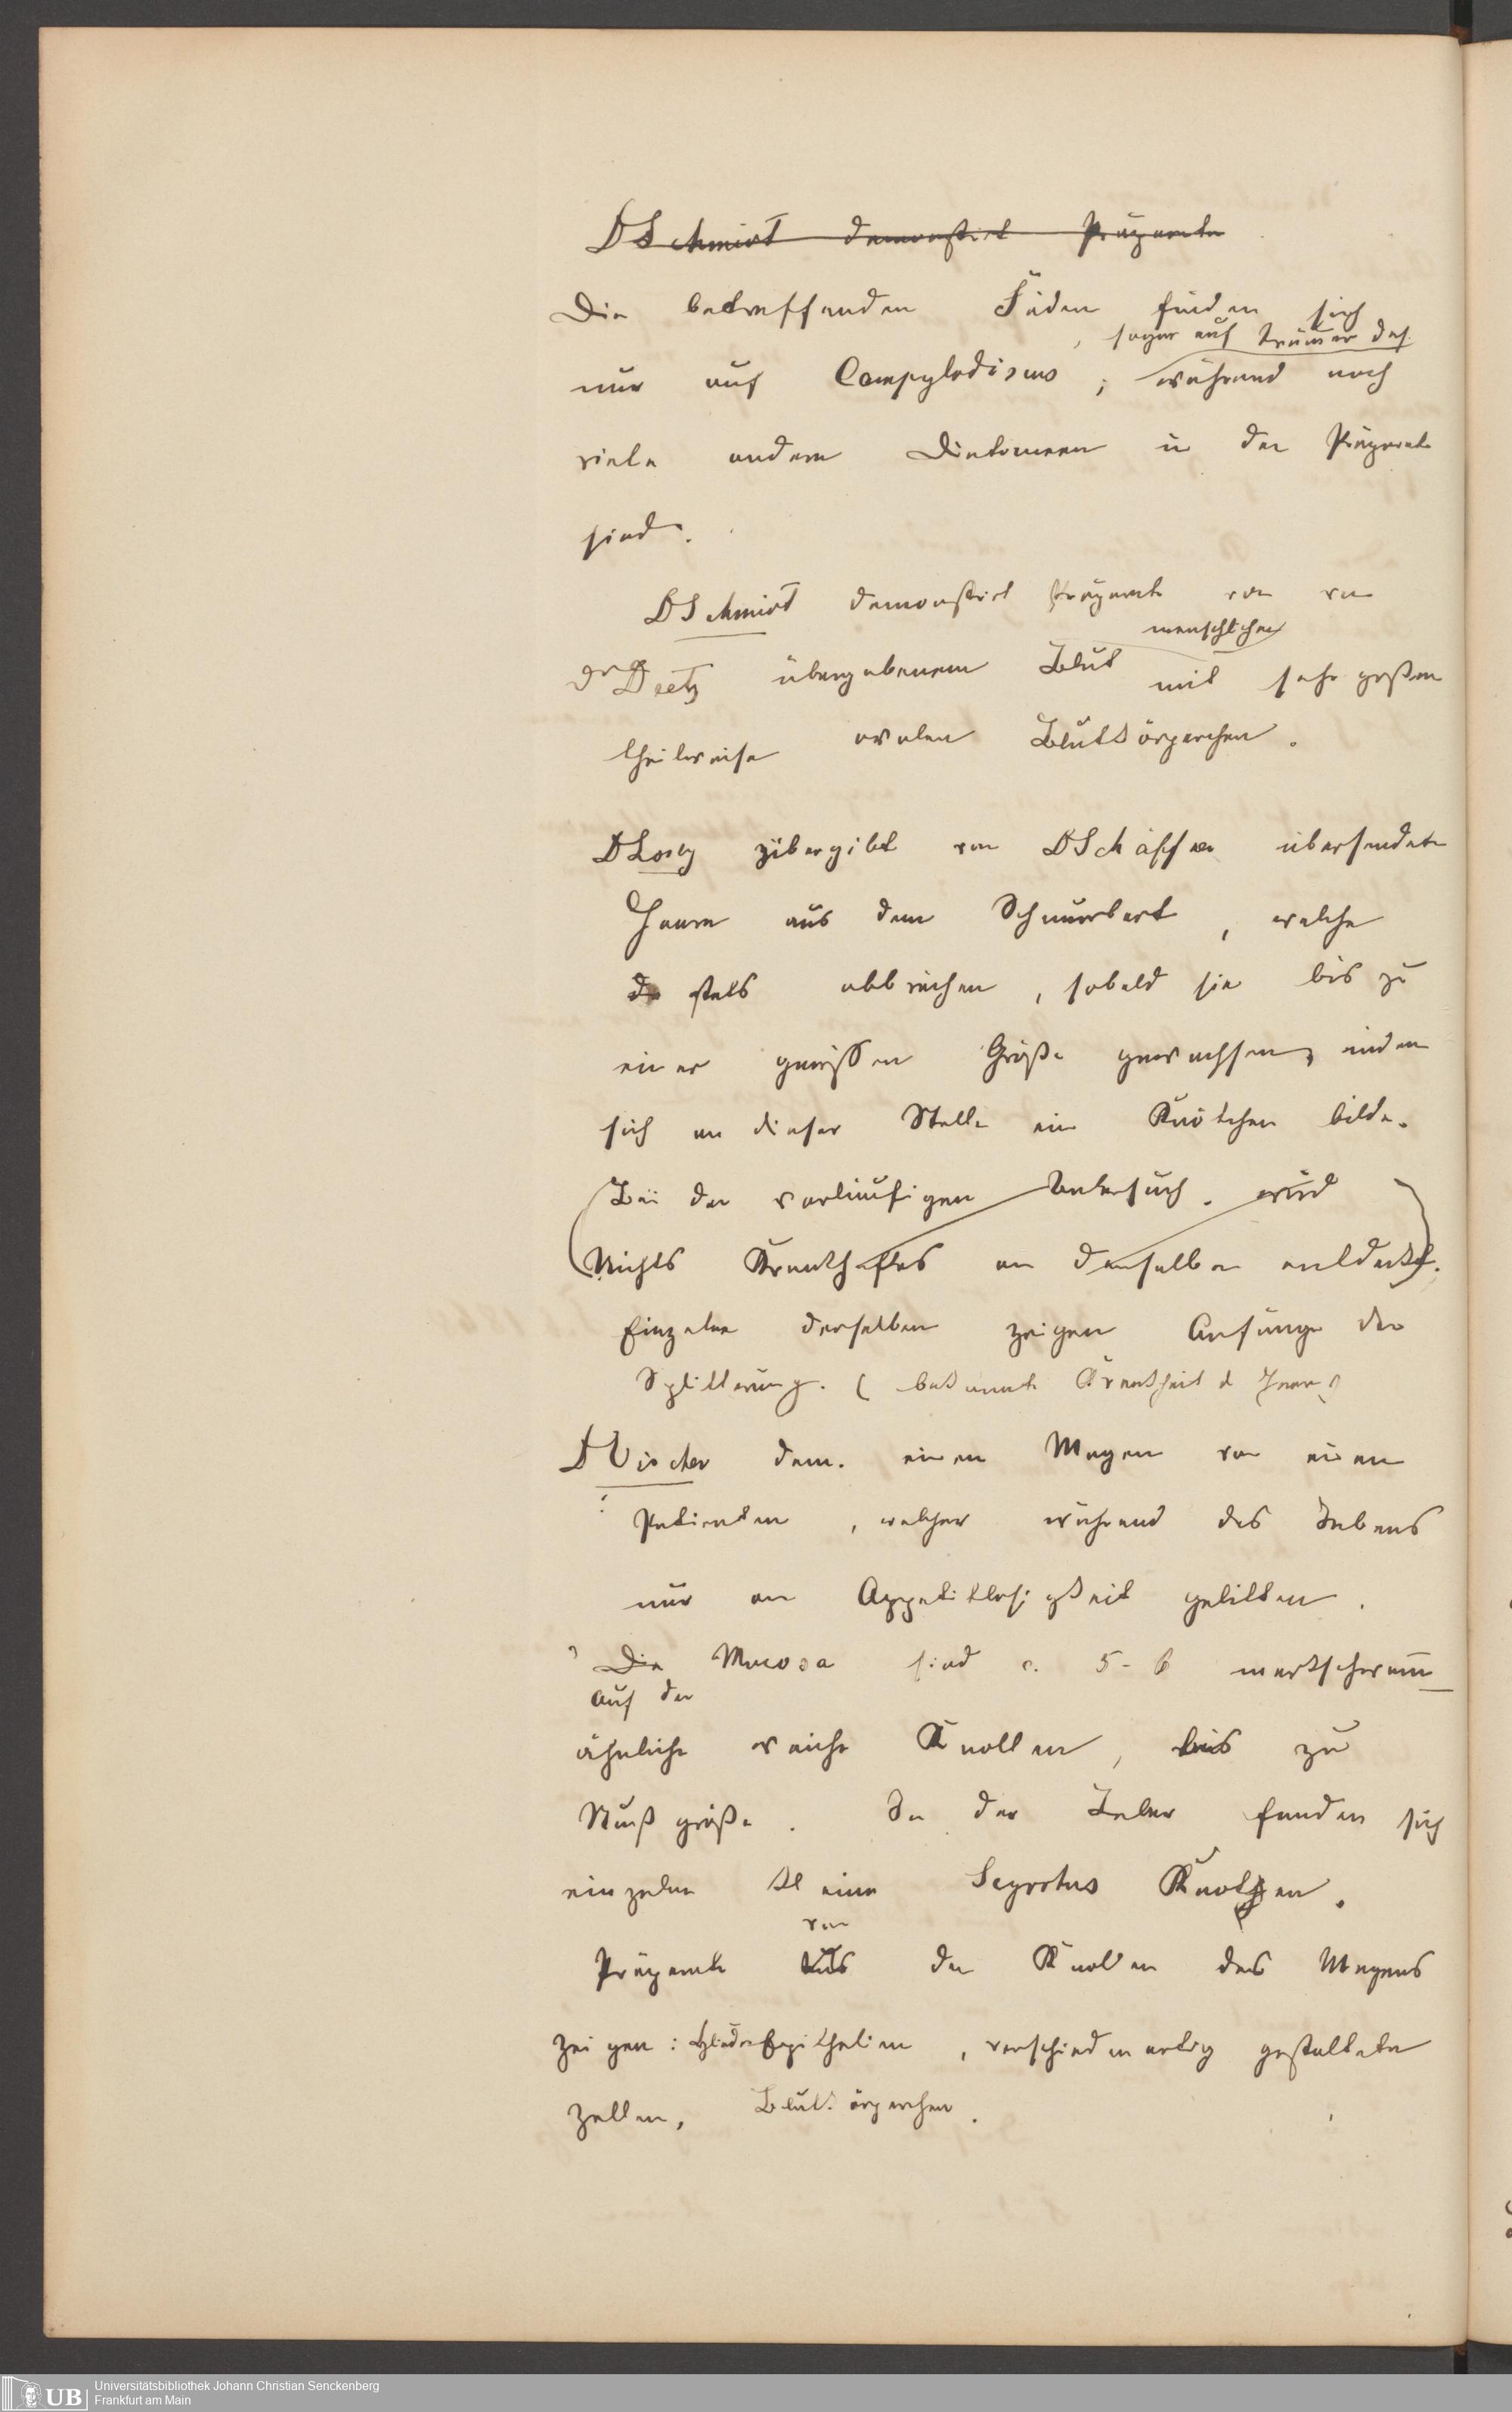 D Schmidt demonstrirt Präparate
Die betreffenden Fäden finden sich
, sogar auf Trümmer des.
nur auf Campylodiscus ; während noch
viele andere Diatomeen in der Präparate
sind.
D Schmidt demonstrirt Präparate von von
menschlichen
Dr Deetz übergebenem Blut mit sehr großen
theilweise ovalen Blutkörperchen.
D Lorey übergibt von D Schäffer übersendete
Haare aus dem Schnurrbart, welche
stets abbrechen, sobald sie bis zu
einer gewissen Größe gewachsen, indem
sich an dieser Stelle ein Knötchen bilde.
(Bei der vorläufigen Untersuch. wird
Nichts Krankhaftes an denselben entdeckt).
Einzelne derselben zeigen Anfänge der
Splitterung. (bekannte Krankheit d Haare)
D Vischer dem. einen Magen von einem
Patienten, welcher während des Lebens
nur an Appetitlosigkeit gelitten.
Die Mucosa sind c. 5-6 markschwamm
auf der
ähnliche weiche Knollen, bis zu
Nußgröße. In der Leber fanden sich
einzelne kleine Knoten.
von
Präparate aus den Knoten des Magens
zeigen: Epithelien, verschiedenartig gestaltete
Zellen, Blutkörperchen.
Universitätsbibliothek Johann Christian Senckenberg
Frankfurt am Main
UB